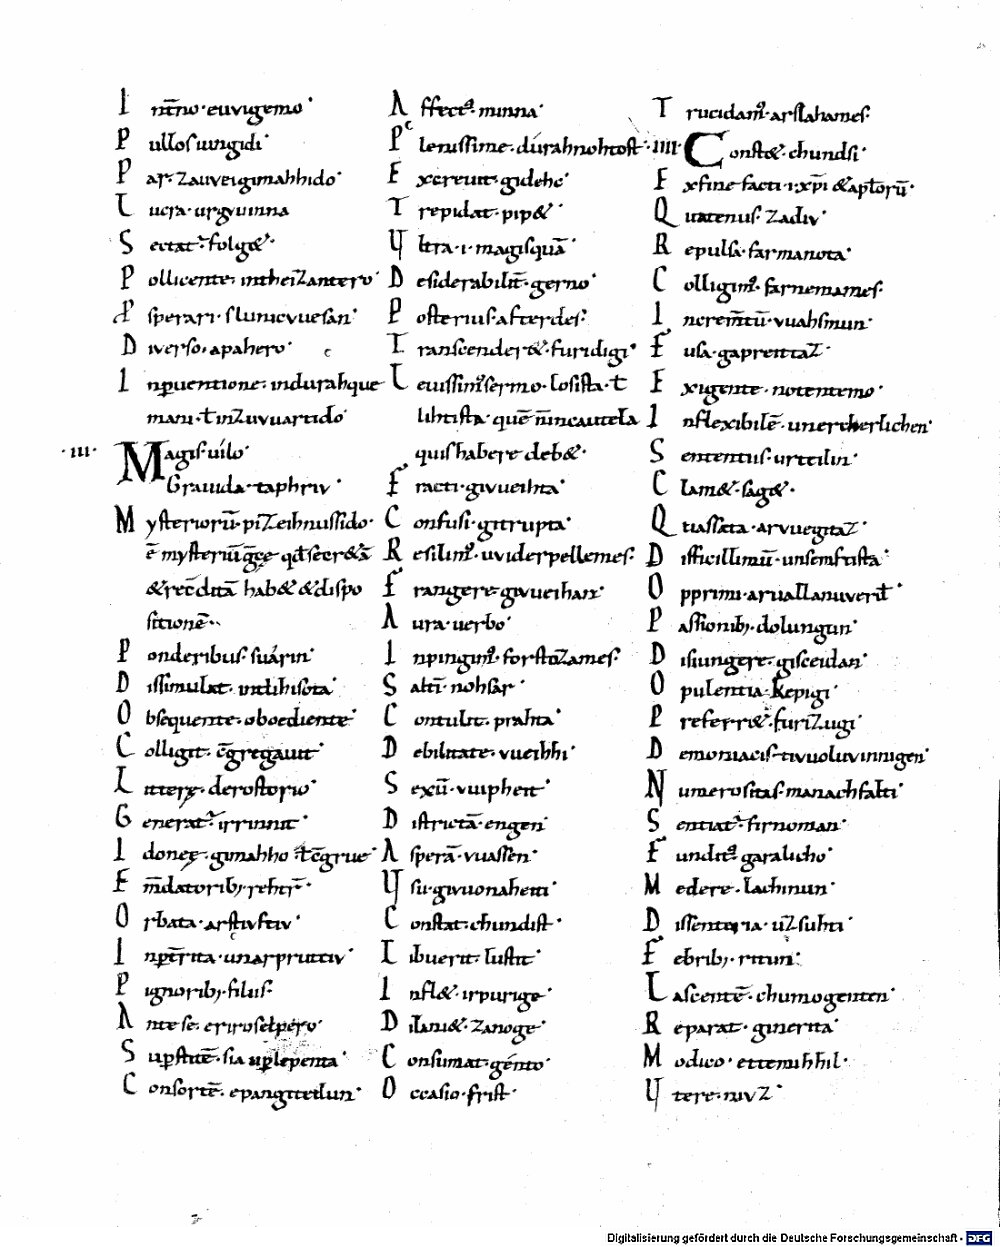 Int̄no· euuigemo·
Pullos· iungidi·
Par· zaueigimahhido·
Lucra· urguuinna
Sectat᷒· folg&·
Pollicente· intheizantero·
Asperari· slunicvuesan·
Diuerso· apahero·
Inp̱uentione· indurahque
mani· ł inzuuuartido·
·III· Magis· uilo·
Grauida· taphriu·
Mysterioru᷒· pizeihnussido·
ē mysteriū
& recōditā hab& & dispo
sitionē··
Ponderibus· suárin·
Dissimulat· indihisota·
Obsequente· oboediente·
Colligit· c̄gregauit·
Litterę· derostorio·
Generat᷒· irrinnit·
Idoneę· gimahho ł c̄grue·
Em̄datorib;· rehtr̄·
Orbata· arstiuftiu·
Inp̄rita· unarpruttiu·
Pignorib;· filiis·
Ante se· eriroselpero·
Sup̱stitē· sia up̱lepenta·
Consortē· epangiteilun·
Affect᷒· minna·
Plenissime· durahnohtost·
Excreuit· gidehc·
Trepidat· pip&·
Vltra· i· magisquā·
Desiderabilit̄· gerno·
Posterius· afterdes·
Transcender&· furidigi·
Leuissim᷒ sermo· losista· ł
lihtista· quē n̄incautela
quis habere deb&·
Fracti· giuueihta·
Confusi· gitrupta·
Resilim᷒· uuiderpellemes·
Frangere· giuueihan·
Aura· uerbo·
Inpingim᷒· forstozames·
Salti· nohsar·
Contulit· prahta·
Debilitate· vueihhi·
Sexū· vuipheit·
Districtā· engen·
Asperā· vuassen·
Vsu· giuuonaheiti·
Constat· chundist·
Tribuerit· lustit·
Infl&· irpurige·
Dilani&· zanoge·
Consumat· génto·
Occasio· frist·
Trucidam᷒· arslahames·
·IIII· Const&· chundsi·
Exfine facti· i· xp̄i & aptorū·
Quatenus· zadiu·
Repulsa· farmanota·
Colligim᷒· farnemames·
Increm̄tū· vuahsmun·
Fusa· gapreittaz·
Exigente· notentemo·
Inflexibilē· unercherlichen·
Sententus· urteilin·
Clam&· sag&·
Quassata· aruuegitaz·
Difficillimū· unsemftista·
Opprimi· aruallanuuerd·
Passionib;· dolungun·
Disiungere· gisceidan·
Opulentia· kepigi·
Preferr&· furizugi·
Demoniacis· tiuuoluuinnigen·
Numerositas· manachfalti·
Sentiat᷒· firnoman·
Fundit᷒· garalicho·
Medere· lachinun·
Dissenteria· uzsuhti·
Febrib;· ritun·
Lascentē· chumogenten·
Reparat· ginerita·
Modico· ettenuhhil·
Vtere· niuz·
Digitalisierung gefördert durch die Deutsche Forschungsgemeinschaft - DFG